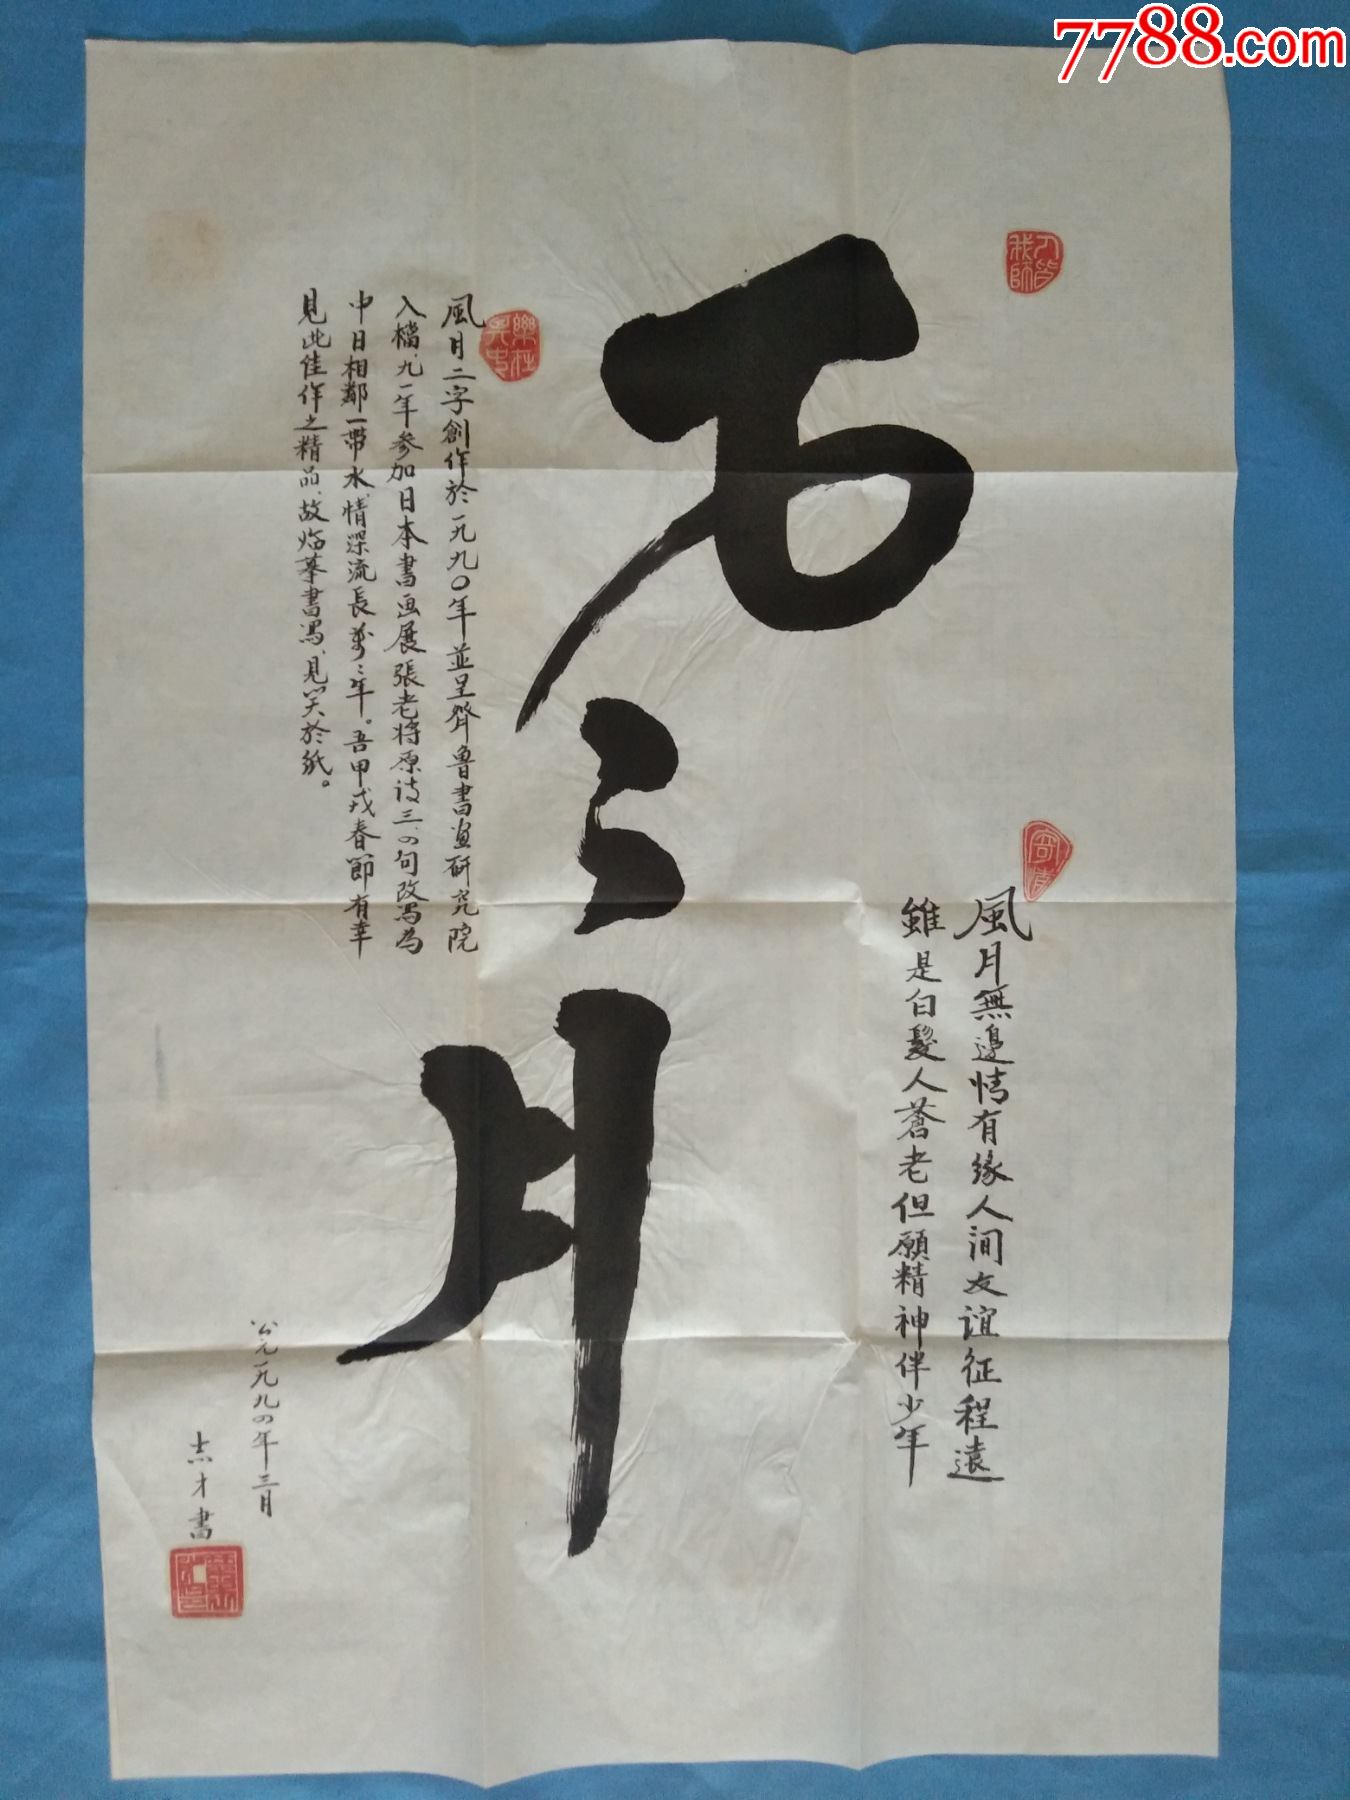 7788.com
人皆我師
風月
風月無邉情有缘人间友谊征程遠
雖是白髮人蒼老但願精神伴少年
樂在其中
風月二字創作於一九九〇年並呈齊魯書画研究院
入檔、九一年参加日本書画展張老将原诗三、四句改写為
中日相鄰一带水、情深流長萬〻年。吾甲戌春節有幸
見此佳作之精品、故临摹書写、見笑於紙。
公元一九九四年三月
志才書